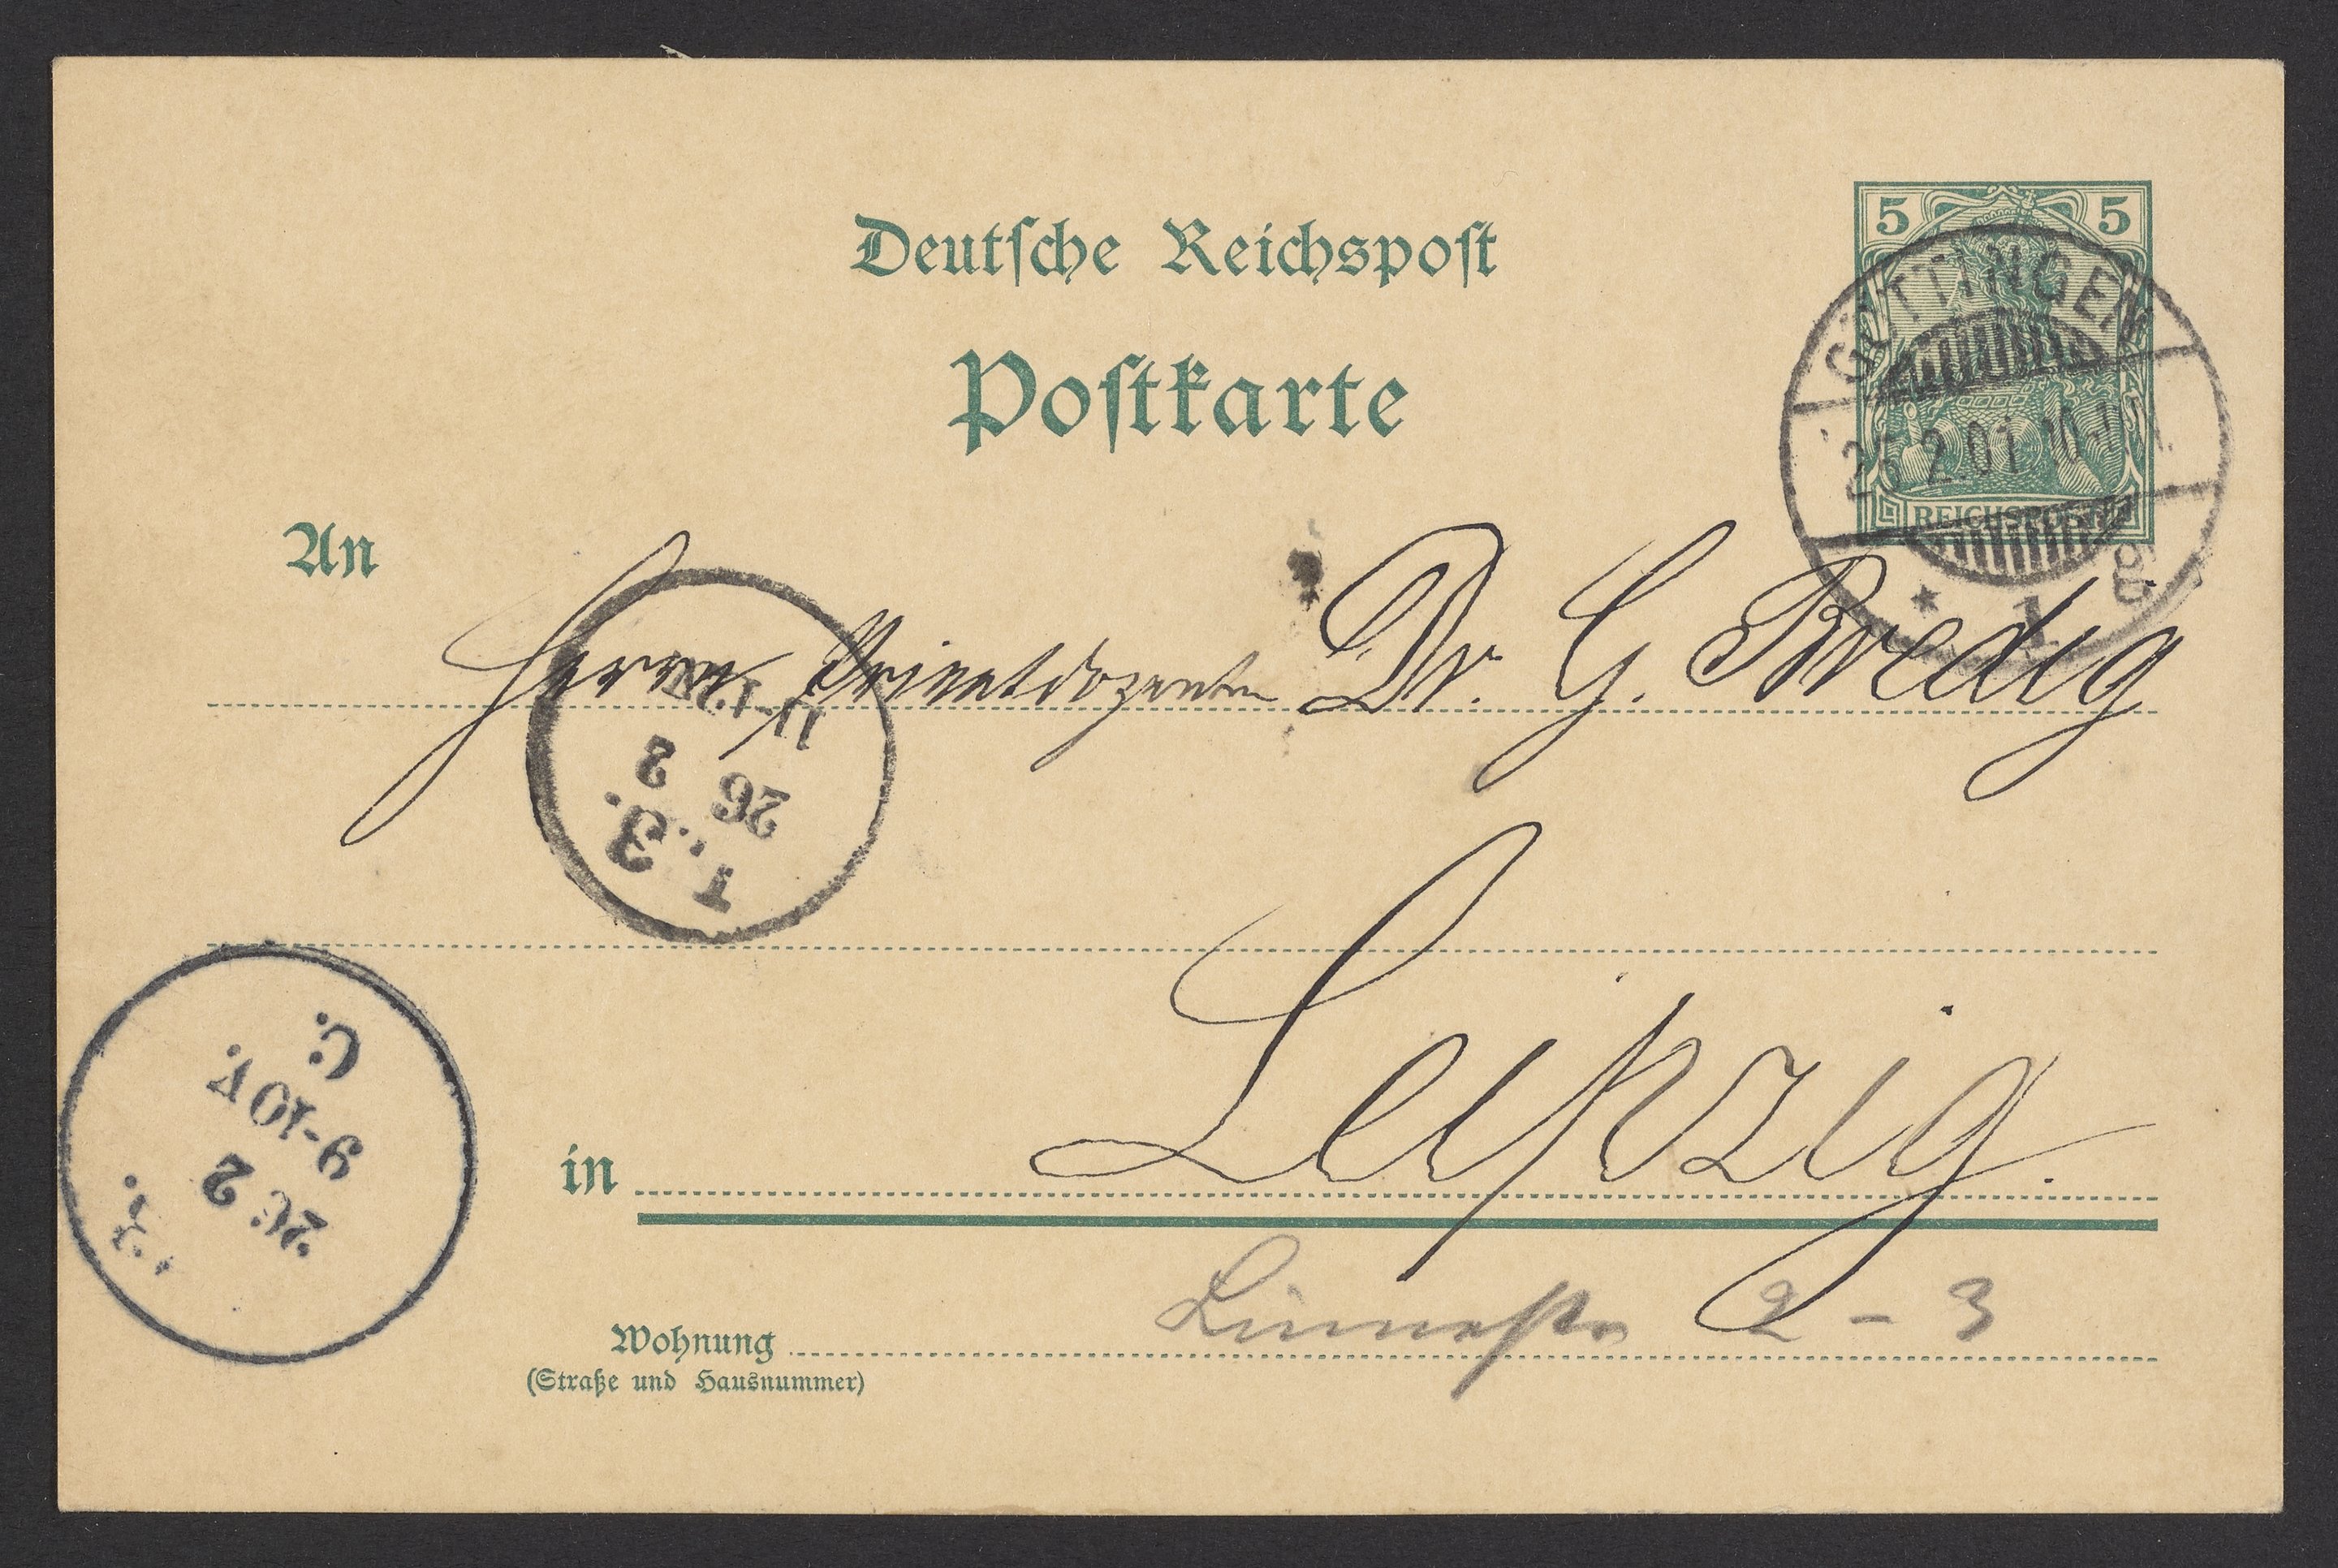 Deutsche Reichspost
Postkarte
5 5
REICHSPOST
GÖTTINGEN
25.2.01.10-11
* 1
An
Herrn Privatdozenten Dr. G. Bredig
11-12
26 2
T. 3.
in Leipzig.
C.
9-10V.
26 2
Wohnung Linnestr 2-3
(Straße und Hausnummer)